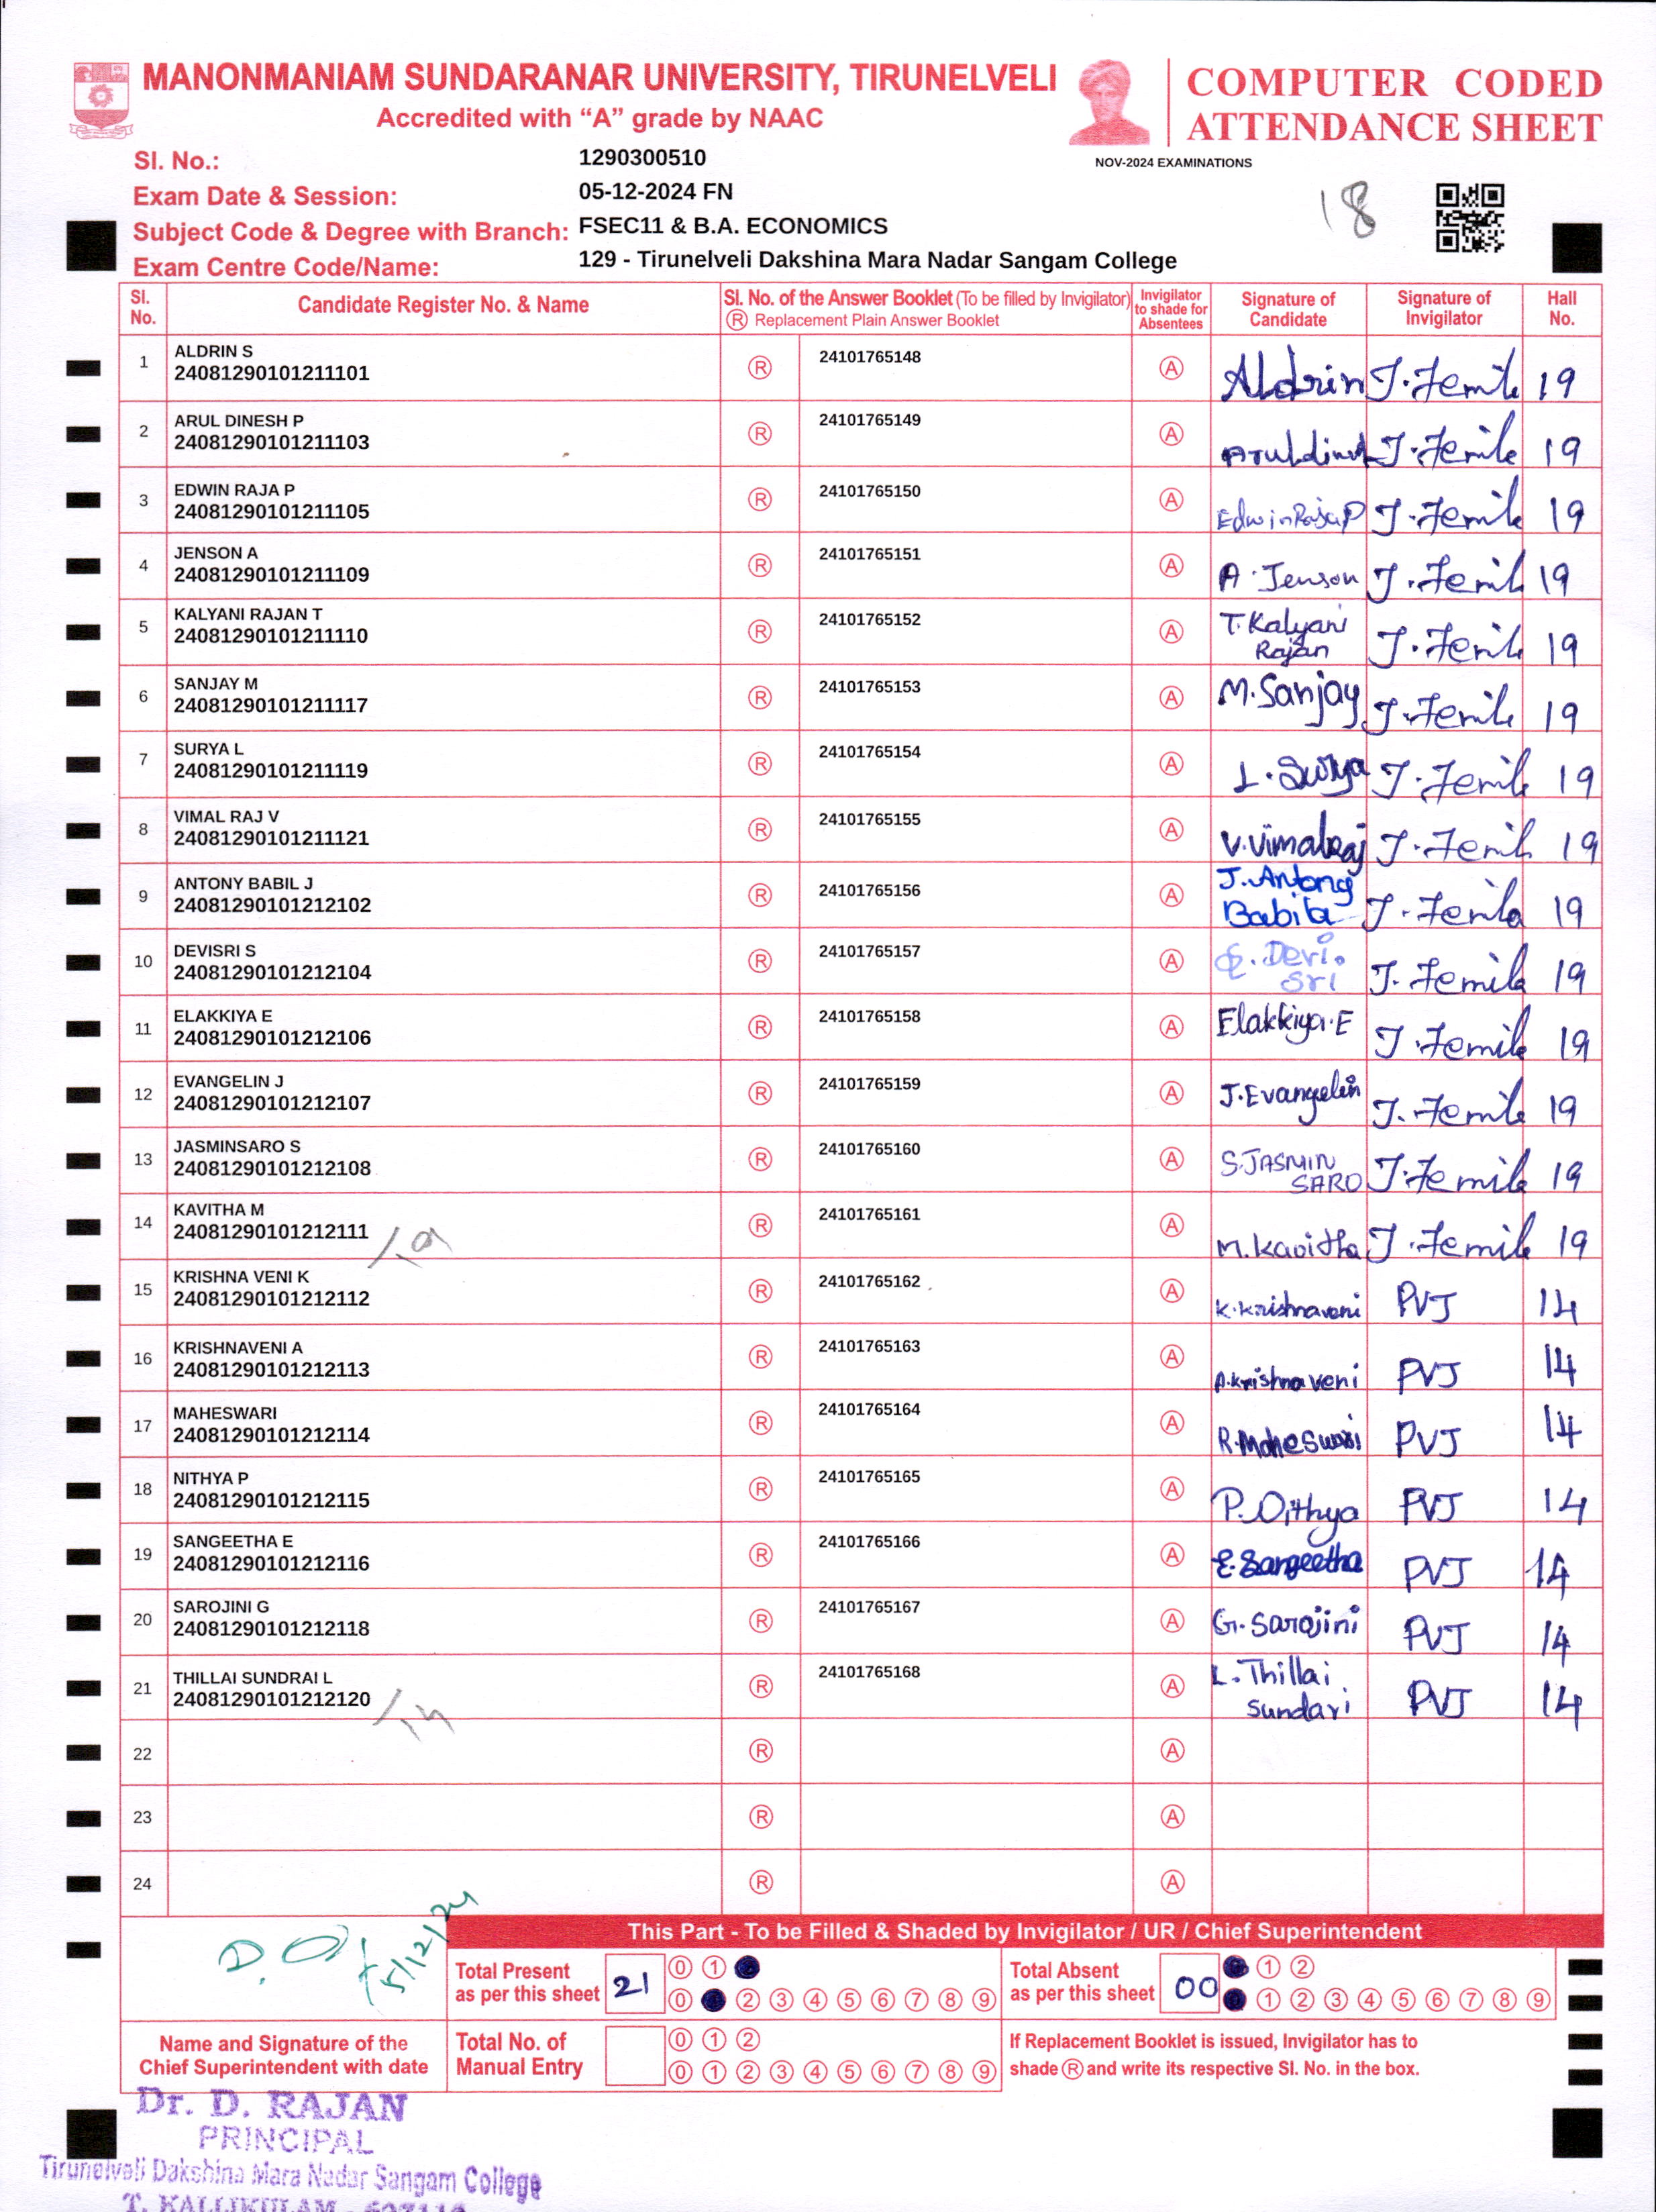 MANONMANIAM SUNDARANAR UNIVERSITY, TIRUNELVELI
Accredited with “A” grade by NAAC
COMPUTER CODED
ATTENDANCE SHEET
NOV-2024 EXAMINATIONS
Sl. No.: 1290300510
Exam Date & Session: 05-12-2024 FN
Subject Code & Degree with Branch: FSEC11 & B.A. ECONOMICS
Exam Centre Code/Name: 129 - Tirunelveli Dakshina Mara Nadar Sangam College
18
Sl. No. Candidate Register No. & Name Sl. No. of the Answer Booklet (To be filled by Invigilator) Ⓡ Replacement Plain Answer Booklet Invigilator to shade for Absentees Signature of Candidate Signature of Invigilator Hall No.
1 ALDRIN S 24081290101211101 Ⓡ 24101765148 Ⓐ Aldrin J.Femila 19
2 ARUL DINESH P 24081290101211103 Ⓡ 24101765149 Ⓐ J.Femila 19
3 EDWIN RAJA P 24081290101211105 Ⓡ 24101765150 Ⓐ Edwin Raja P J.Femila 19
4 JENSON A 24081290101211109 Ⓡ 24101765151 Ⓐ A. Jenson J.Femila 19
5 KALYANI RAJAN T 24081290101211110 Ⓡ 24101765152 Ⓐ T.Kalyani Rajan J.Femila 19
6 SANJAY M 24081290101211117 Ⓡ 24101765153 Ⓐ M.Sanjay J.Femila 19
7 SURYA L 24081290101211119 Ⓡ 24101765154 Ⓐ L.Surya J.Femila 19
8 VIMAL RAJ V 24081290101211121 Ⓡ 24101765155 Ⓐ V.Vimalraj J.Femila 19
9 ANTONY BABIL J 24081290101212102 Ⓡ 24101765156 Ⓐ J.Antony Babila J.Femila 19
10 DEVISRI S 24081290101212104 Ⓡ 24101765157 Ⓐ S.Devi Sri J.Femila 19
11 ELAKKIYA E 24081290101212106 Ⓡ 24101765158 Ⓐ Elakkiya.E J.Femila 19
12 EVANGELIN J 24081290101212107 Ⓡ 24101765159 Ⓐ J.Evangelin J.Femila 19
13 JASMINSARO S 24081290101212108 Ⓡ 24101765160 Ⓐ S.JASMIN SARO J.Femila 19
14 KAVITHA M 24081290101212111 Ⓡ 24101765161 Ⓐ M.Kavitha J.Femila 19
15 KRISHNA VENI K 24081290101212112 Ⓡ 24101765162 Ⓐ K.Krishnaveni PVJ 14
16 KRISHNAVENI A 24081290101212113 Ⓡ 24101765163 Ⓐ A.Krishnaveni PVJ 14
17 MAHESWARI 24081290101212114 Ⓡ 24101765164 Ⓐ R.Maheswari PVJ 14
18 NITHYA P 24081290101212115 Ⓡ 24101765165 Ⓐ P.Nithya PVJ 14
19 SANGEETHA E 24081290101212116 Ⓡ 24101765166 Ⓐ E.Sangeetha PVJ 14
20 SAROJINI G 24081290101212118 Ⓡ 24101765167 Ⓐ G.Sarojini PVJ 14
21 THILLAI SUNDRAI L 24081290101212120 Ⓡ 24101765168 Ⓐ L.Thillai Sundari PVJ 14
22 Ⓡ Ⓐ
23 Ⓡ Ⓐ
24 Ⓡ Ⓐ
5/12/24
This Part - To be Filled & Shaded by Invigilator / UR / Chief Superintendent
Total Present as per this sheet 21 0 1
0 2 3 4 5 6 7 8 9
Total Absent as per this sheet 00 1 2
1 2 3 4 5 6 7 8 9
Name and Signature of the
Chief Superintendent with date
Total No. of Manual Entry 0 1 2
0 1 2 3 4 5 6 7 8 9
If Replacement Booklet is issued, Invigilator has to
shade Ⓡ and write its respective Sl. No. in the box.
Dr. D. RAJAN
PRINCIPAL
Tirunelveli Dakshina Mara Nadar Sangam College
T. KALLIKULAM